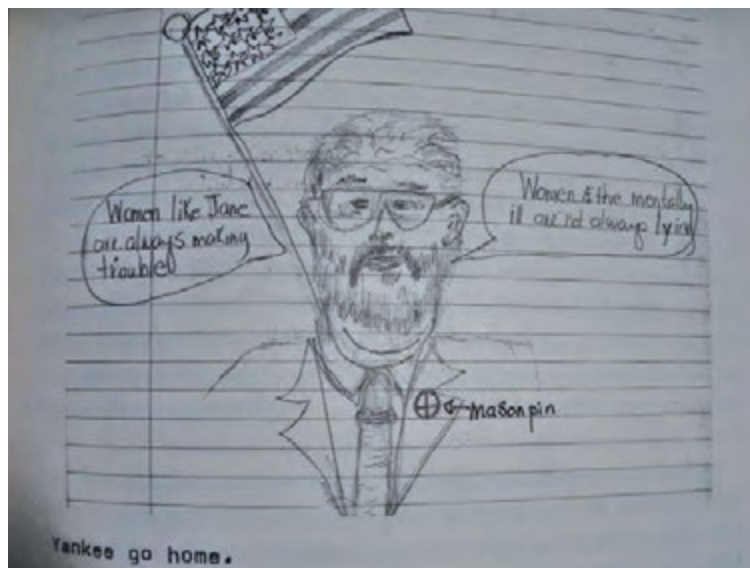 Women like Jane
are always making
trouble!
Women & the mentally
ill are not always lyrical
mason pin
Yankee go home.